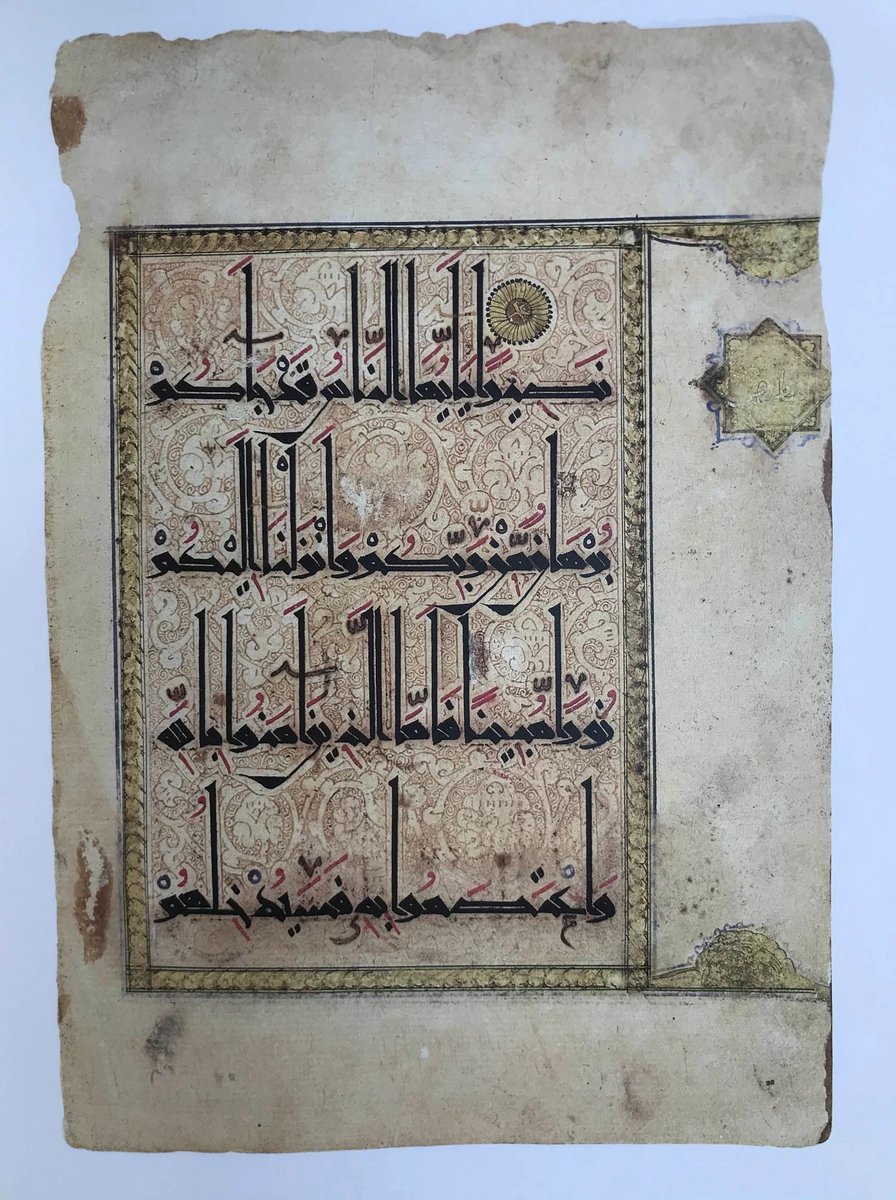 نَصِيرًا يَاَيُّهَا النَّاسُ قَدْ جَاَكُمْ
بُرْهَانٌ مِّنْ رَّبِّكُمْ وَاَنْزَلْنَا اِلَيْكُمْ
نُورًا مُّبِينًا فَاَمَّا الَّذِينَ اٰمَنُوا بِاللّٰهِ
وَاعْتَصَمُوا بِهِ فَسَيُدْخِلُهُمْ